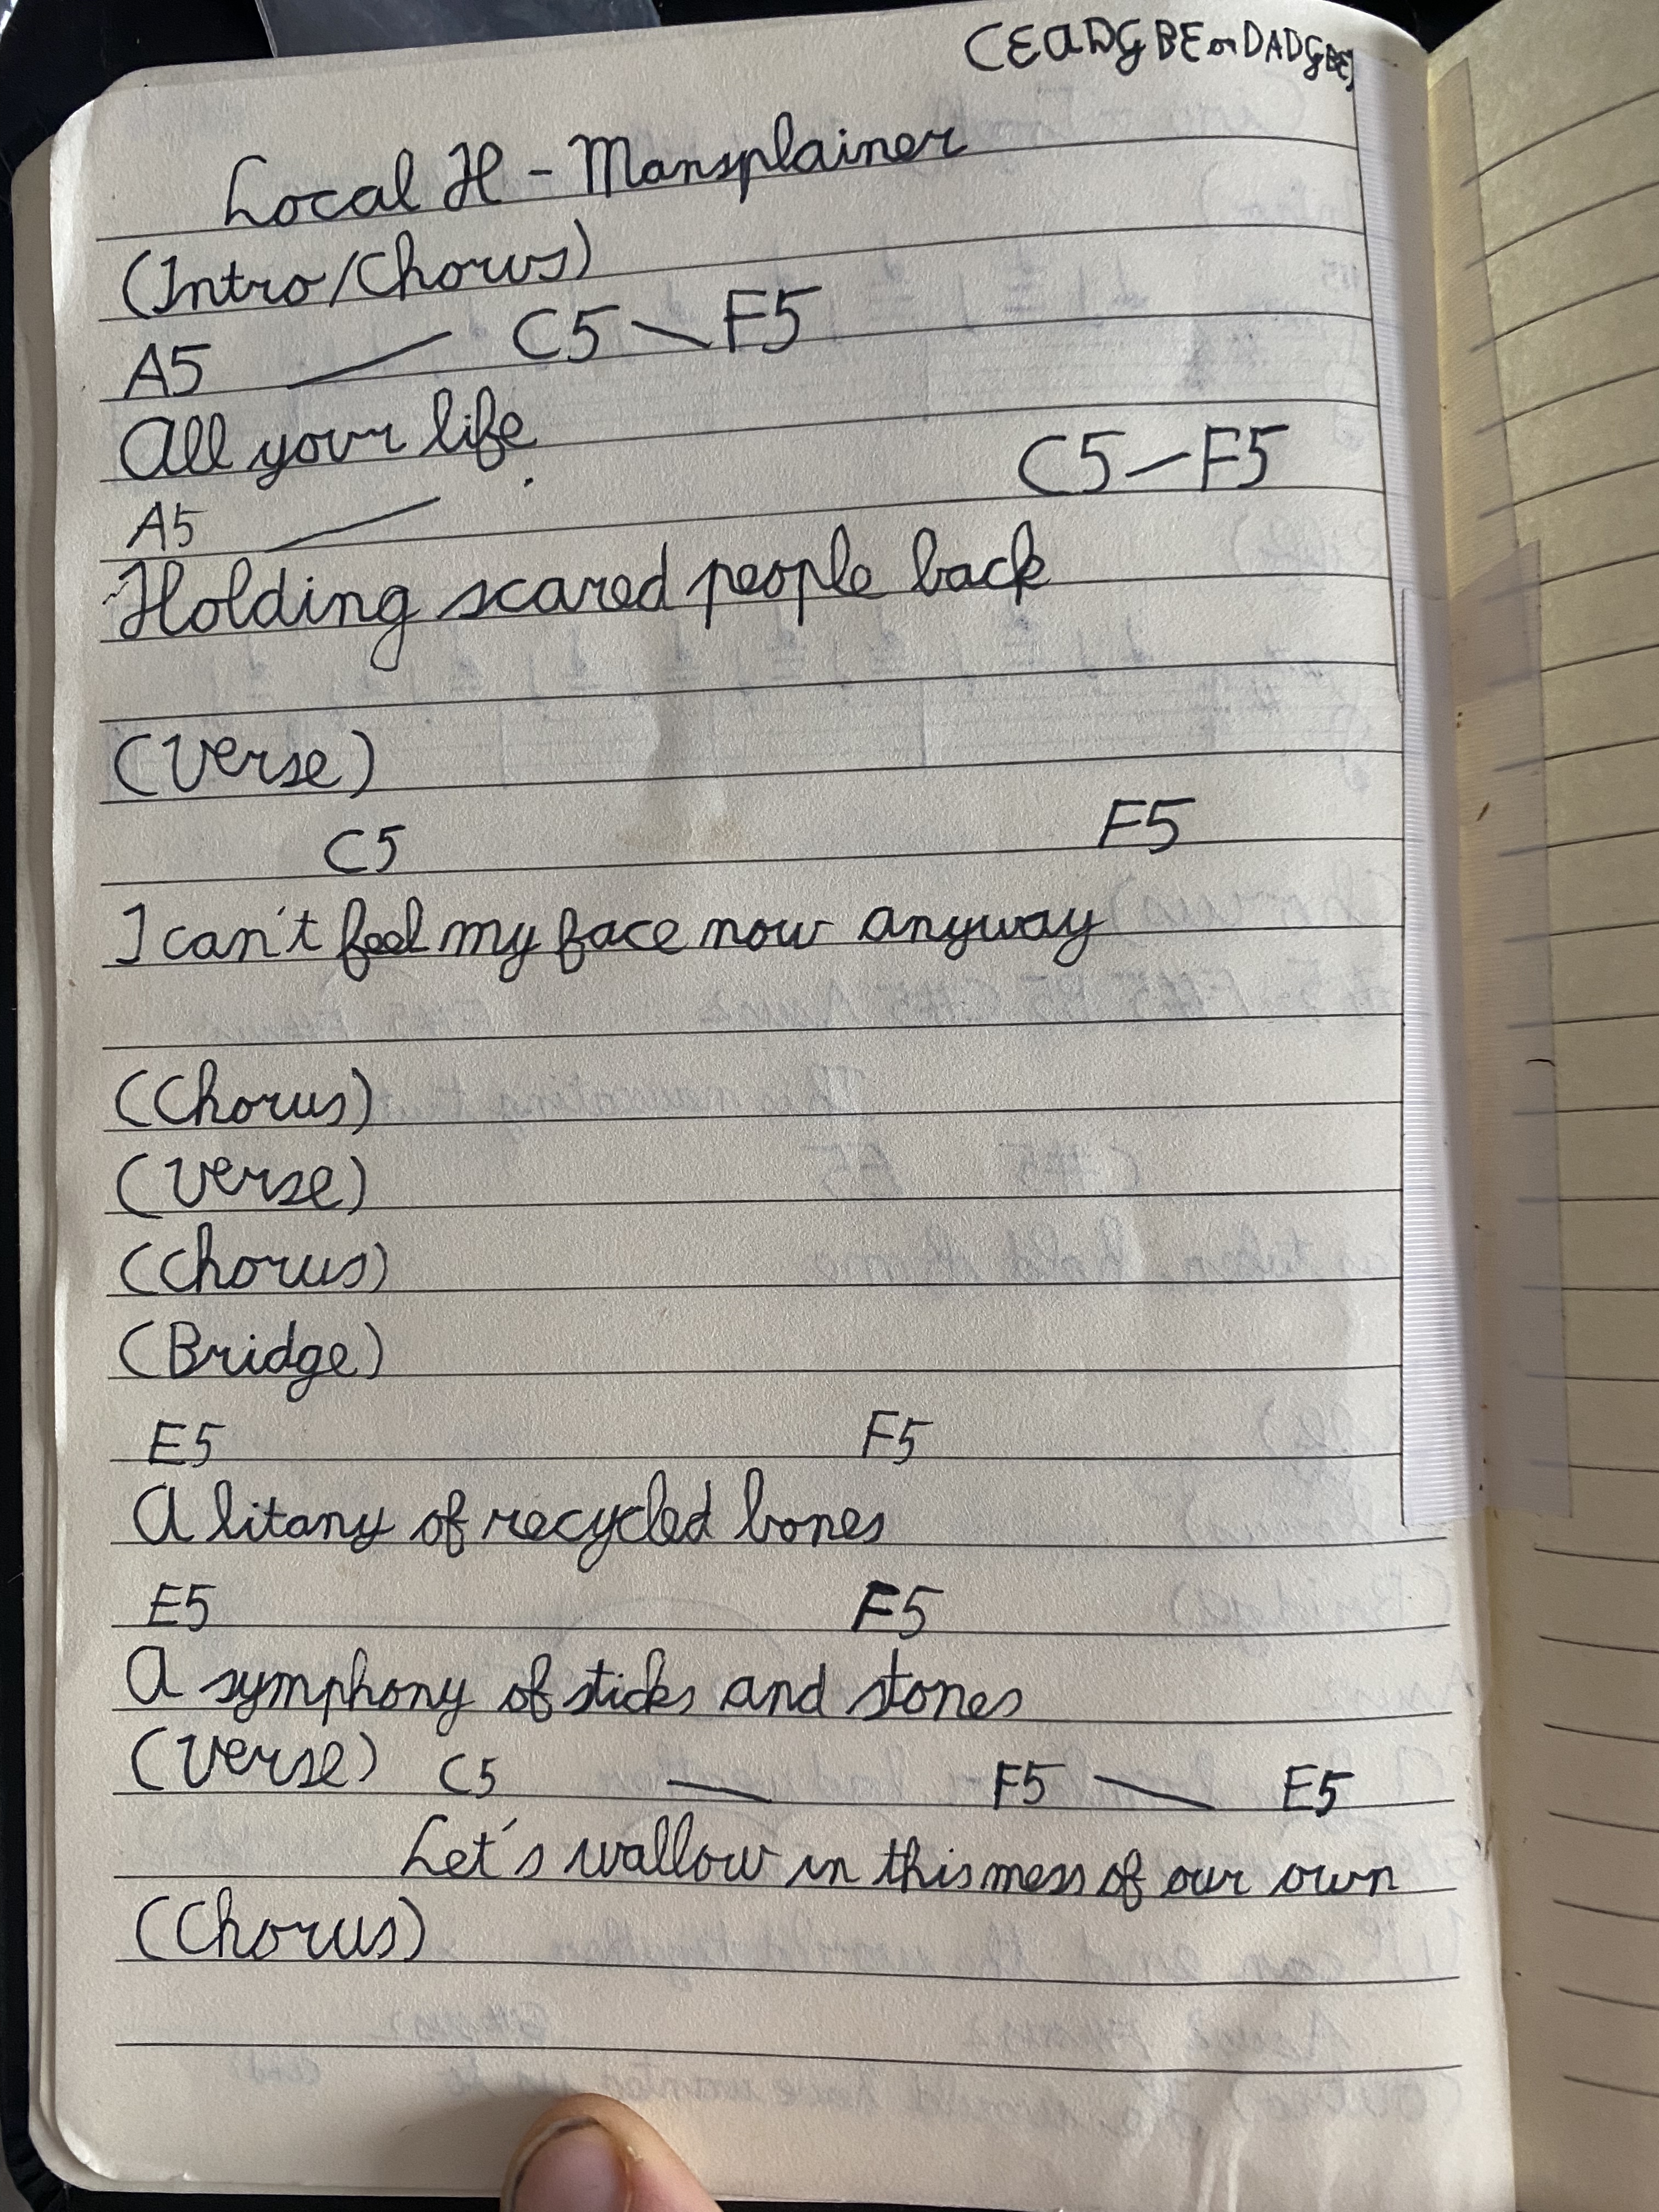 CEADGBE or DADGBE
Local H - Mansplainer
(Intro/Chorus)
A5 C5 F5
All your life
A5 C5-F5
Holding scared people back
(Verse)
C5 F5
I can't feel my face now anyway
(Chorus)
(Verse)
(Chorus)
(Bridge)
E5 F5
A litany of recycled bones
E5 F5
A symphony of sticks and stones
(Verse) C5 F5 E5
Let's wallow in this mess of our own
(Chorus)